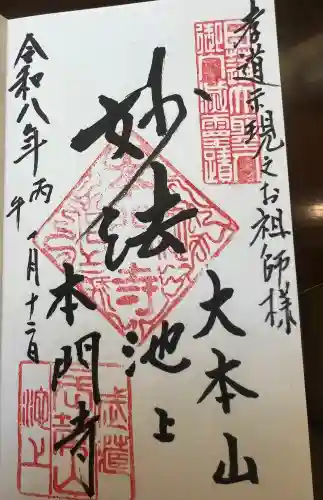 孝道示現之お祖師様
大本山
妙法
池上
本門寺
令和八年丙午一月十二日